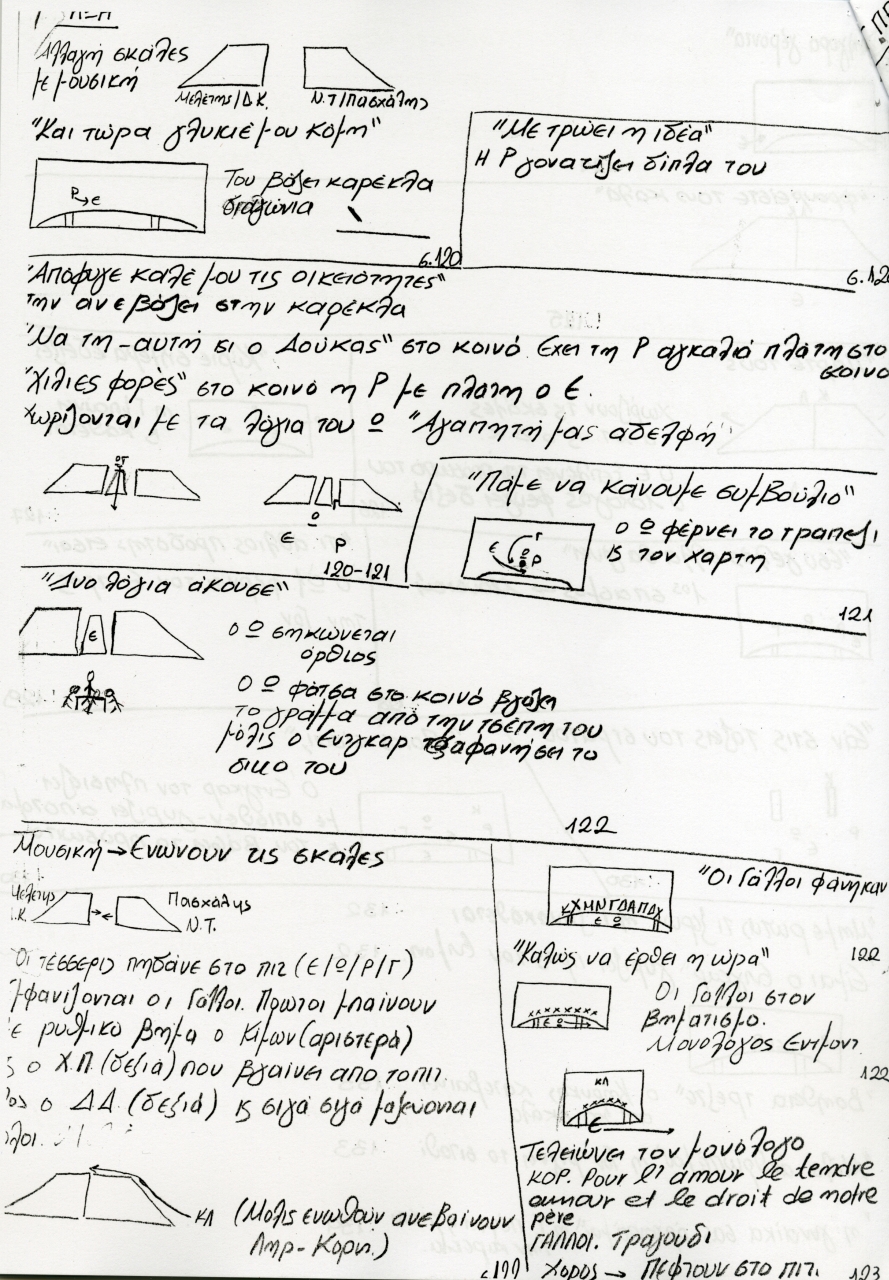 Αλλαγή σκάλες
με μουσική
Μελέτης/Δ.Κ.
Ν.Τ/Πασχάλης
"Και τώρα γλυκιέ μου κόμη"
Ρ ε
Του βάζει καρέκλα
διαγώνια
σ.120
"Με τρώει η ιδέα"
Η Ρ γονατίζει δίπλα του
σ.120
"Απόφυγε καλέ μου τις οικειότητες"
την ανεβάζει στην καρέκλα
"Να τη-αυτή κι ο Δούκας" στο κοινό. Έχει τη Ρ αγκαλιά πλάτη στο
κοινο
"χίλιες φορές" στο κοινό η Ρ με πλάτη ο Ε.
χωρίζονται με τα λόγια του Ω "Αγαπητή μας αδελφή"
Ω
ε Ρ
120-121
"Πάμε να κάνουμε συμβούλιο"
ο Ω φέρνει το τραπέζι
κς τον χάρτη
ε Γ Ω Ρ
121
"Δυο λόγια άκουσε"
ε
ο Ω σηκώνεται
όρθιος
Ο Ω φάτσα στο κοινό βγάζει
το γράμμα από την τσέπη του
μόλις ο Εντγκαρ εξαφανήσει το
δικο του
122
Μουσική → Ενώνουν τις σκάλες
Μελέτης
Δ.Κ.
Πασχάλης
Ν.Τ.
Οι τέσσερις πηδάνε στο πιτ (Ε/Ω/Ρ/Γ)
Εμφανίζονται οι Γάλλοι. Πρώτοι μπαίνουν
με ρυθμικό βήμα ο Κίμων (αριστερά)
κς ο Χ.Π. (δεξιά) που βγαίνει από το πιτ.
ο Δ.Δ. (δεξιά) κς σιγά σιγά μαζεύονται
όλοι.
ΚΛ
(Μόλις ενωθούν ανεβαίνουν
Ληρ-Κορν.)
"Οι Γάλλοι φάνηκαν
ΚΧΗΝΓΔΑΠΔΧ
ε Ω
122
"Καλώς να έρθει η ώρα"
×××××××
ΕΩ
Οι Γάλλοι στον
βηματισμό.
Μονόλογος Εντμοντ
122
ΚΛ
×××××
ε
Τελειώνει τον μονόλογο
ΚΟΡ. Pour l' amour le tendre
amour et le droit de notre
père
ΓΑΛΛΟΙ. Τραγούδι
Χορός → ΠΕΦΤΟΥΝ ΣΤΟ ΠΙΤ.
123